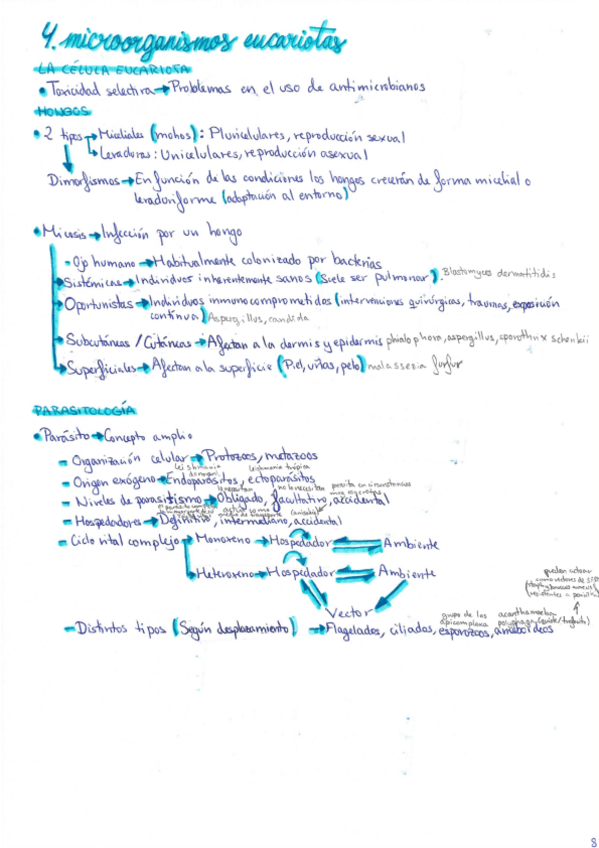 4. microorganismos eucariotas
LA CÉLULA EUCARIOTA
• Toxicidad selectiva → Problemas en el uso de antimicrobianos
HONGOS
• 2 tipos → Miceliales (mohos): Pluricelulares, reproducción sexual
→ Levaduras: Unicelulares, reproducción asexual
Dimorfismos → En función de las condiciones los hongos crecerán de forma micelial o
levaduriforme (adaptación al entorno)
• Micosis → Infección por un hongo
- Ojo humano → Habitualmente colonizado por bacterias
→ Sistémicas → Individuos inherentemente sanos (Suele ser pulmonar). Blastomyces dermatitidis
→ Oportunistas → Individuos inmunocomprometidos (intervenciones quirúrgicas, traumas, exposición
continua) Aspergillus, candida
→ Subcutáneas / Cutáneas → Afectan a la dermis y epidermis phialophora, aspergillus, sporothrix schenkii
→ Superficiales → Afectan a la superficie (Piel, uñas, pelo) malassezia furfur
PARASITOLOGÍA
• Parásito → Concepto amplio
- Organización celular → Protozoos, metazoos
leishmania donovani leishmania trópica
- Origen exógeno → Endoparásitos, ectoparásitos
lo necesitan no lo necesitan parasita en circunstancias
- Niveles de parasitismo → Obligado, facultativo, accidental
- Hospedadores → Definitivo, intermediario, accidental
- Ciclo vital complejo → Monoxeno → Hospedador Ambiente
→ Heteroxeno → Hospedador Ambiente
Vector
pueden actuar
como vectores de
grupo de los apicomplexa acanthamoeba polyphaga
- Distintos tipos (Según desplazamiento) → Flagelados, ciliados, esporozoos, ameboideos
8